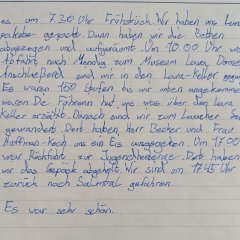 as um 7.30 Uhr Frühstück. Wir haben uns Lunch
pakete gepackt. Dann haben wir die Betten
abgezogen und aufgeräumt. Um 10.00 Uhr war
Abfahrt nach Mendig zum Museum Lava Dome.
Anschließend sind wir in den Lava-Keller gegan
Es waren 150 Stufen bis wir unten angekommen
waren. Die Führerin hat uns was über den Lava
Keller erzählt. Danach sind wir zum Laacher See
gewandert. Dort haben Herr Becker und Frau
Hoffmann-Koch uns ein Eis ausgegeben. Um 17.00
war Rückfahrt zur Jugendherberge. Dort haben
wir das Gepäck abgeholt. Wir sind um 17.45 Uhr
zurück nach Salmtal gefahren.
Es war sehr schön.